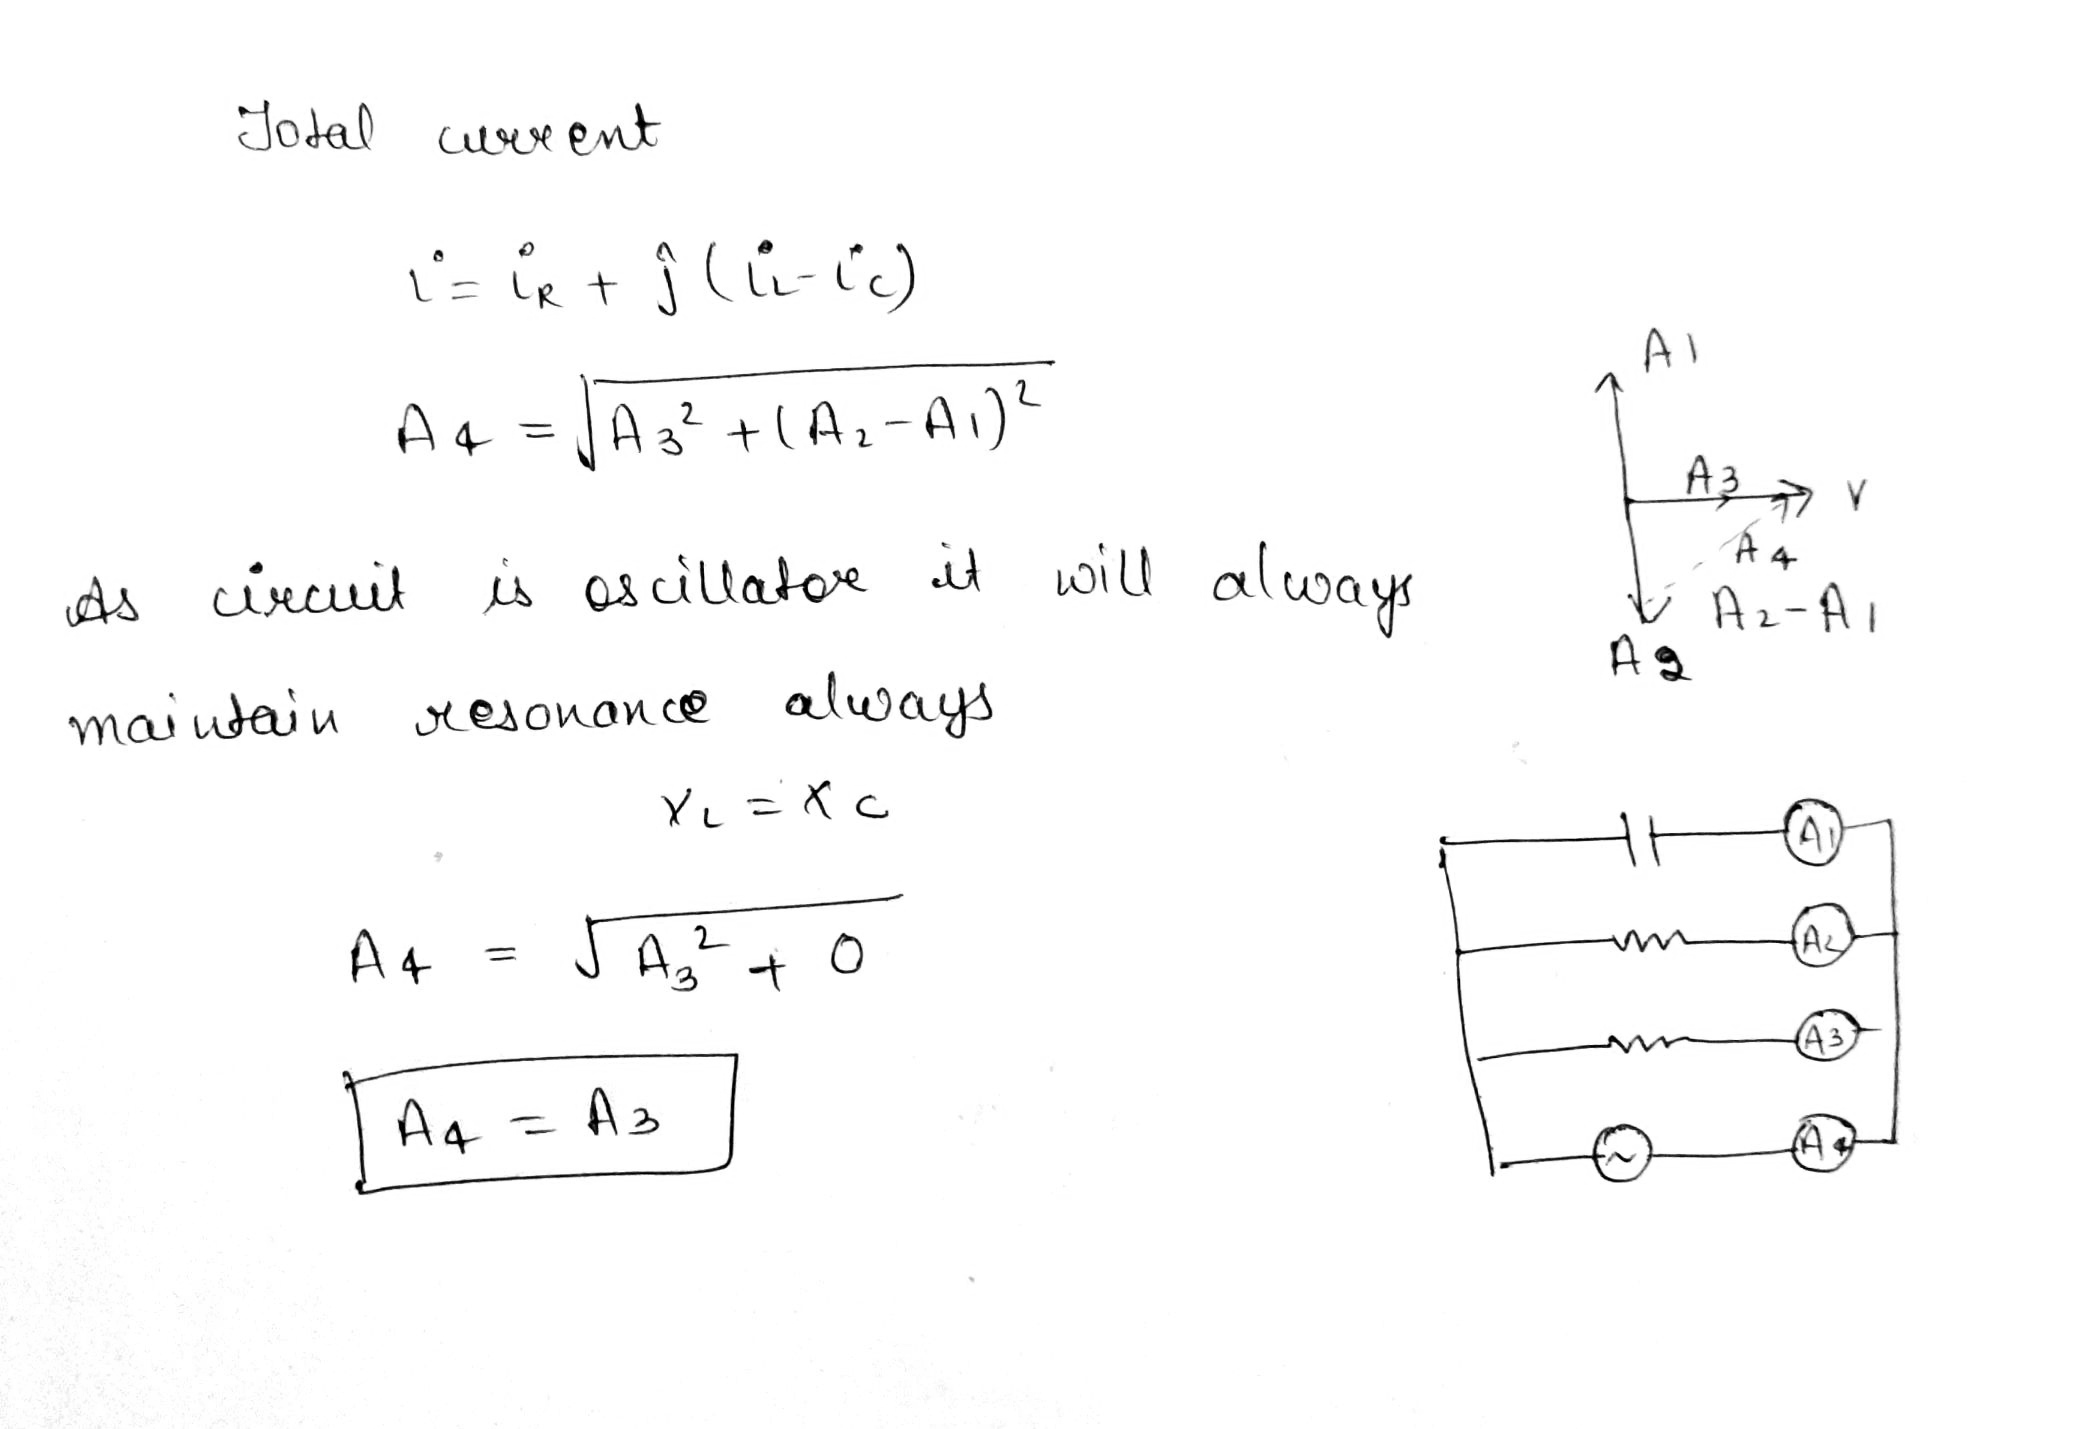 Total current
i = iR + j (iL - iC)
A4 = √A3² + (A2 - A1)²
As circuit is oscillator it will always
maintain resonance always
XL = XC
A4 = √A3² + 0
A4 = A3
A1
A3 V
A4
A2 - A1
A2
A1
A2
A3
~ A4